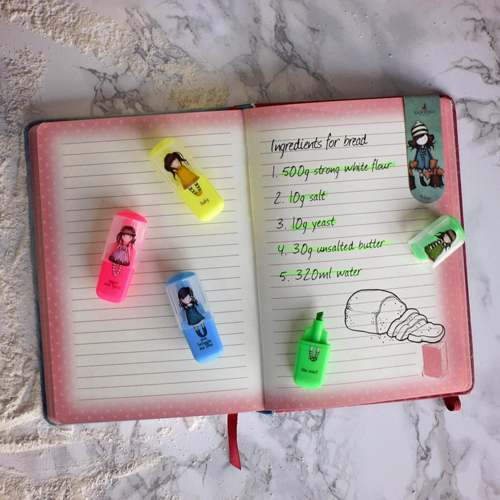 Ingredients for bread
1. 500g strong white flour
2. 10g salt
3. 10g yeast
4. 30g unsalted butter
5. 320ml water
Ruby